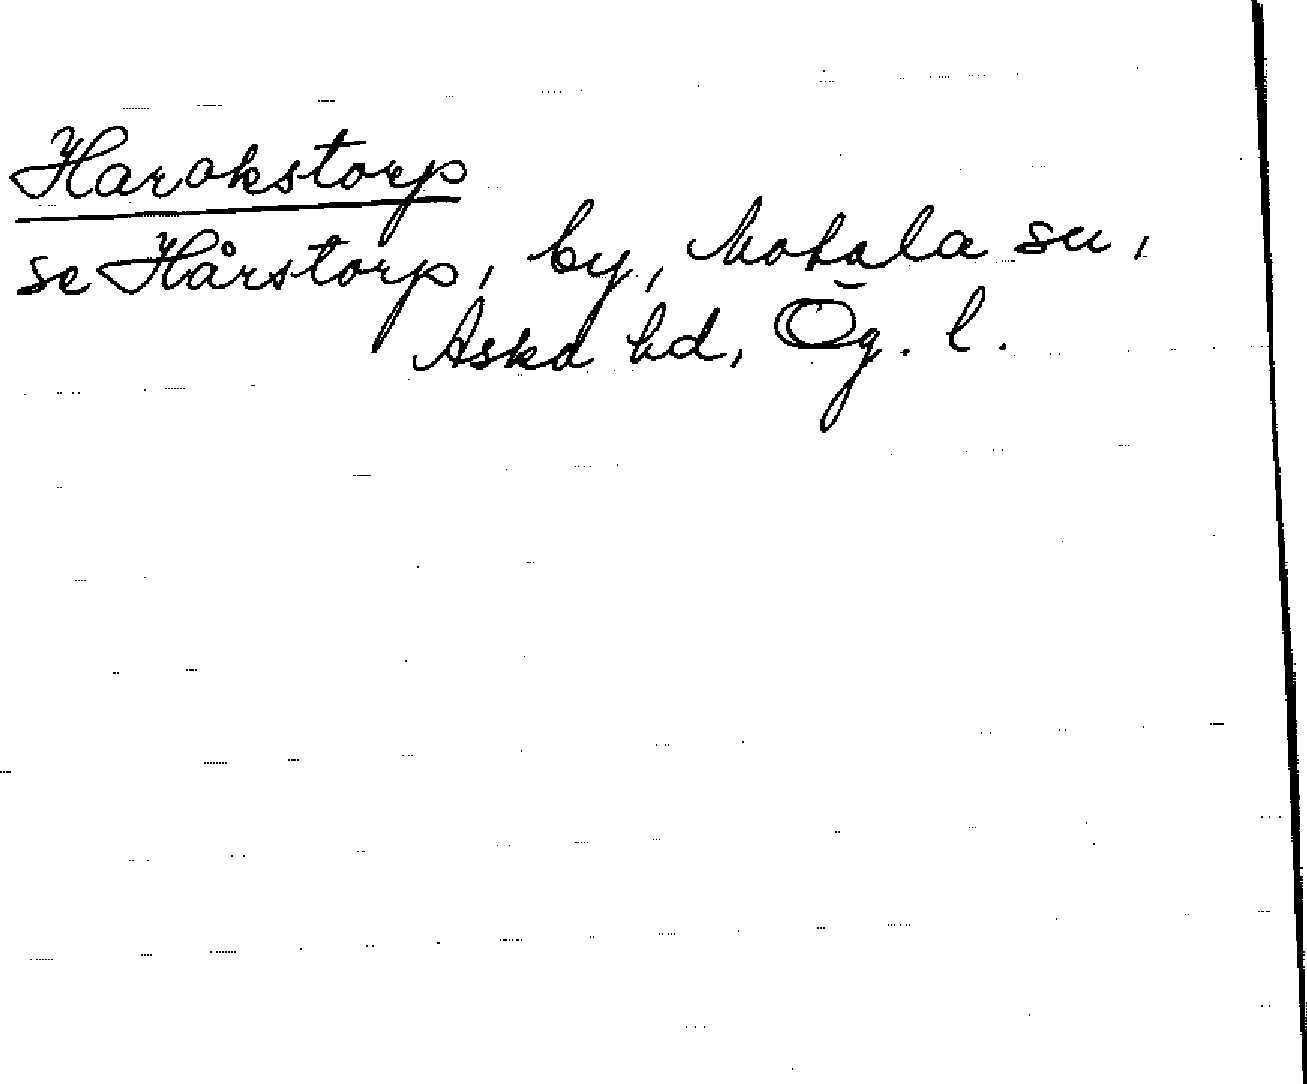 Harokstorp
se Hårstorp, by, Motala sn,
Aska hd, Ög. l.